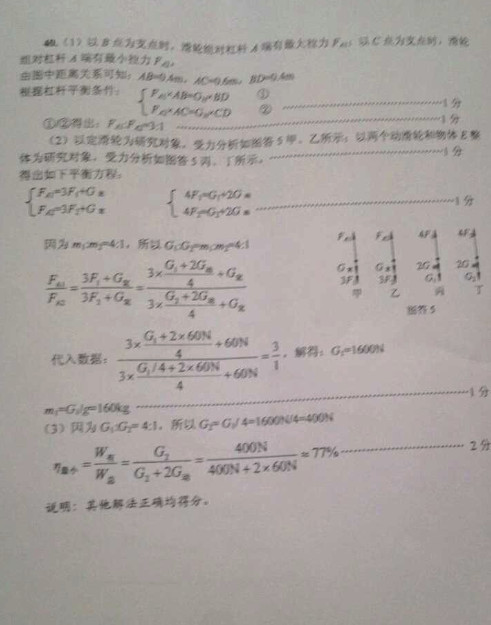 40.(1)以 B 点为支点时，滑轮组对杠杆 A 端有最大拉力 F_A1；以 C 点为支点时，滑轮
组对杠杆 A 端有最小拉力 F_A2。
由图中距离关系可知：AB=0.4m，AC=0.6m，BD=0.4m
根据杠杆平衡条件：
F_A1×AB=G_H×BD ①
F_A2×AC=G_H×CD ② ……1 分
①/②得出：F_A1:F_A2=3:1 ……1 分
（2）以定滑轮为研究对象，受力分析如图答 5 甲、乙所示；以两个动滑轮和物体 E 整
体为研究对象，受力分析如图答 5 丙、丁所示。……1 分
得出如下平衡方程：
F_A1=3F₁+G定 4F₁=G₁+2G动
F_A2=3F₂+G定 4F₂=G₂+2G动 ……1 分
因为 m₁:m₂=4:1，所以 G₁:G₂=m₁:m₂=4:1
F_A1/F_A2 = (3F₁+G定)/(3F₂+G定) = (3×(G₁+2G动)/4+G定)/(3×(G₂+2G动)/4+G定)
F_A1 F_A2 4F₁ 4F₂
G定 G定 2G动 2G动
3F₁ 3F₂ G₁ G₂
甲 乙 丙 丁
图答 5
代入数据：(3×(G₁+2×60N)/4+60N)/(3×(G₁/4+2×60N)/4+60N) = 3/1，解得：G₁=1600N
m₁=G₁/g=160kg ……1 分
（3）因为 G₁:G₂=4:1，所以 G₂=G₁/4=1600N/4=400N
η最小 = W有/W总 = G₂/(G₂+2G动) = 400N/(400N+2×60N) ≈ 77% ……2 分
说明：其他解法正确均得分。